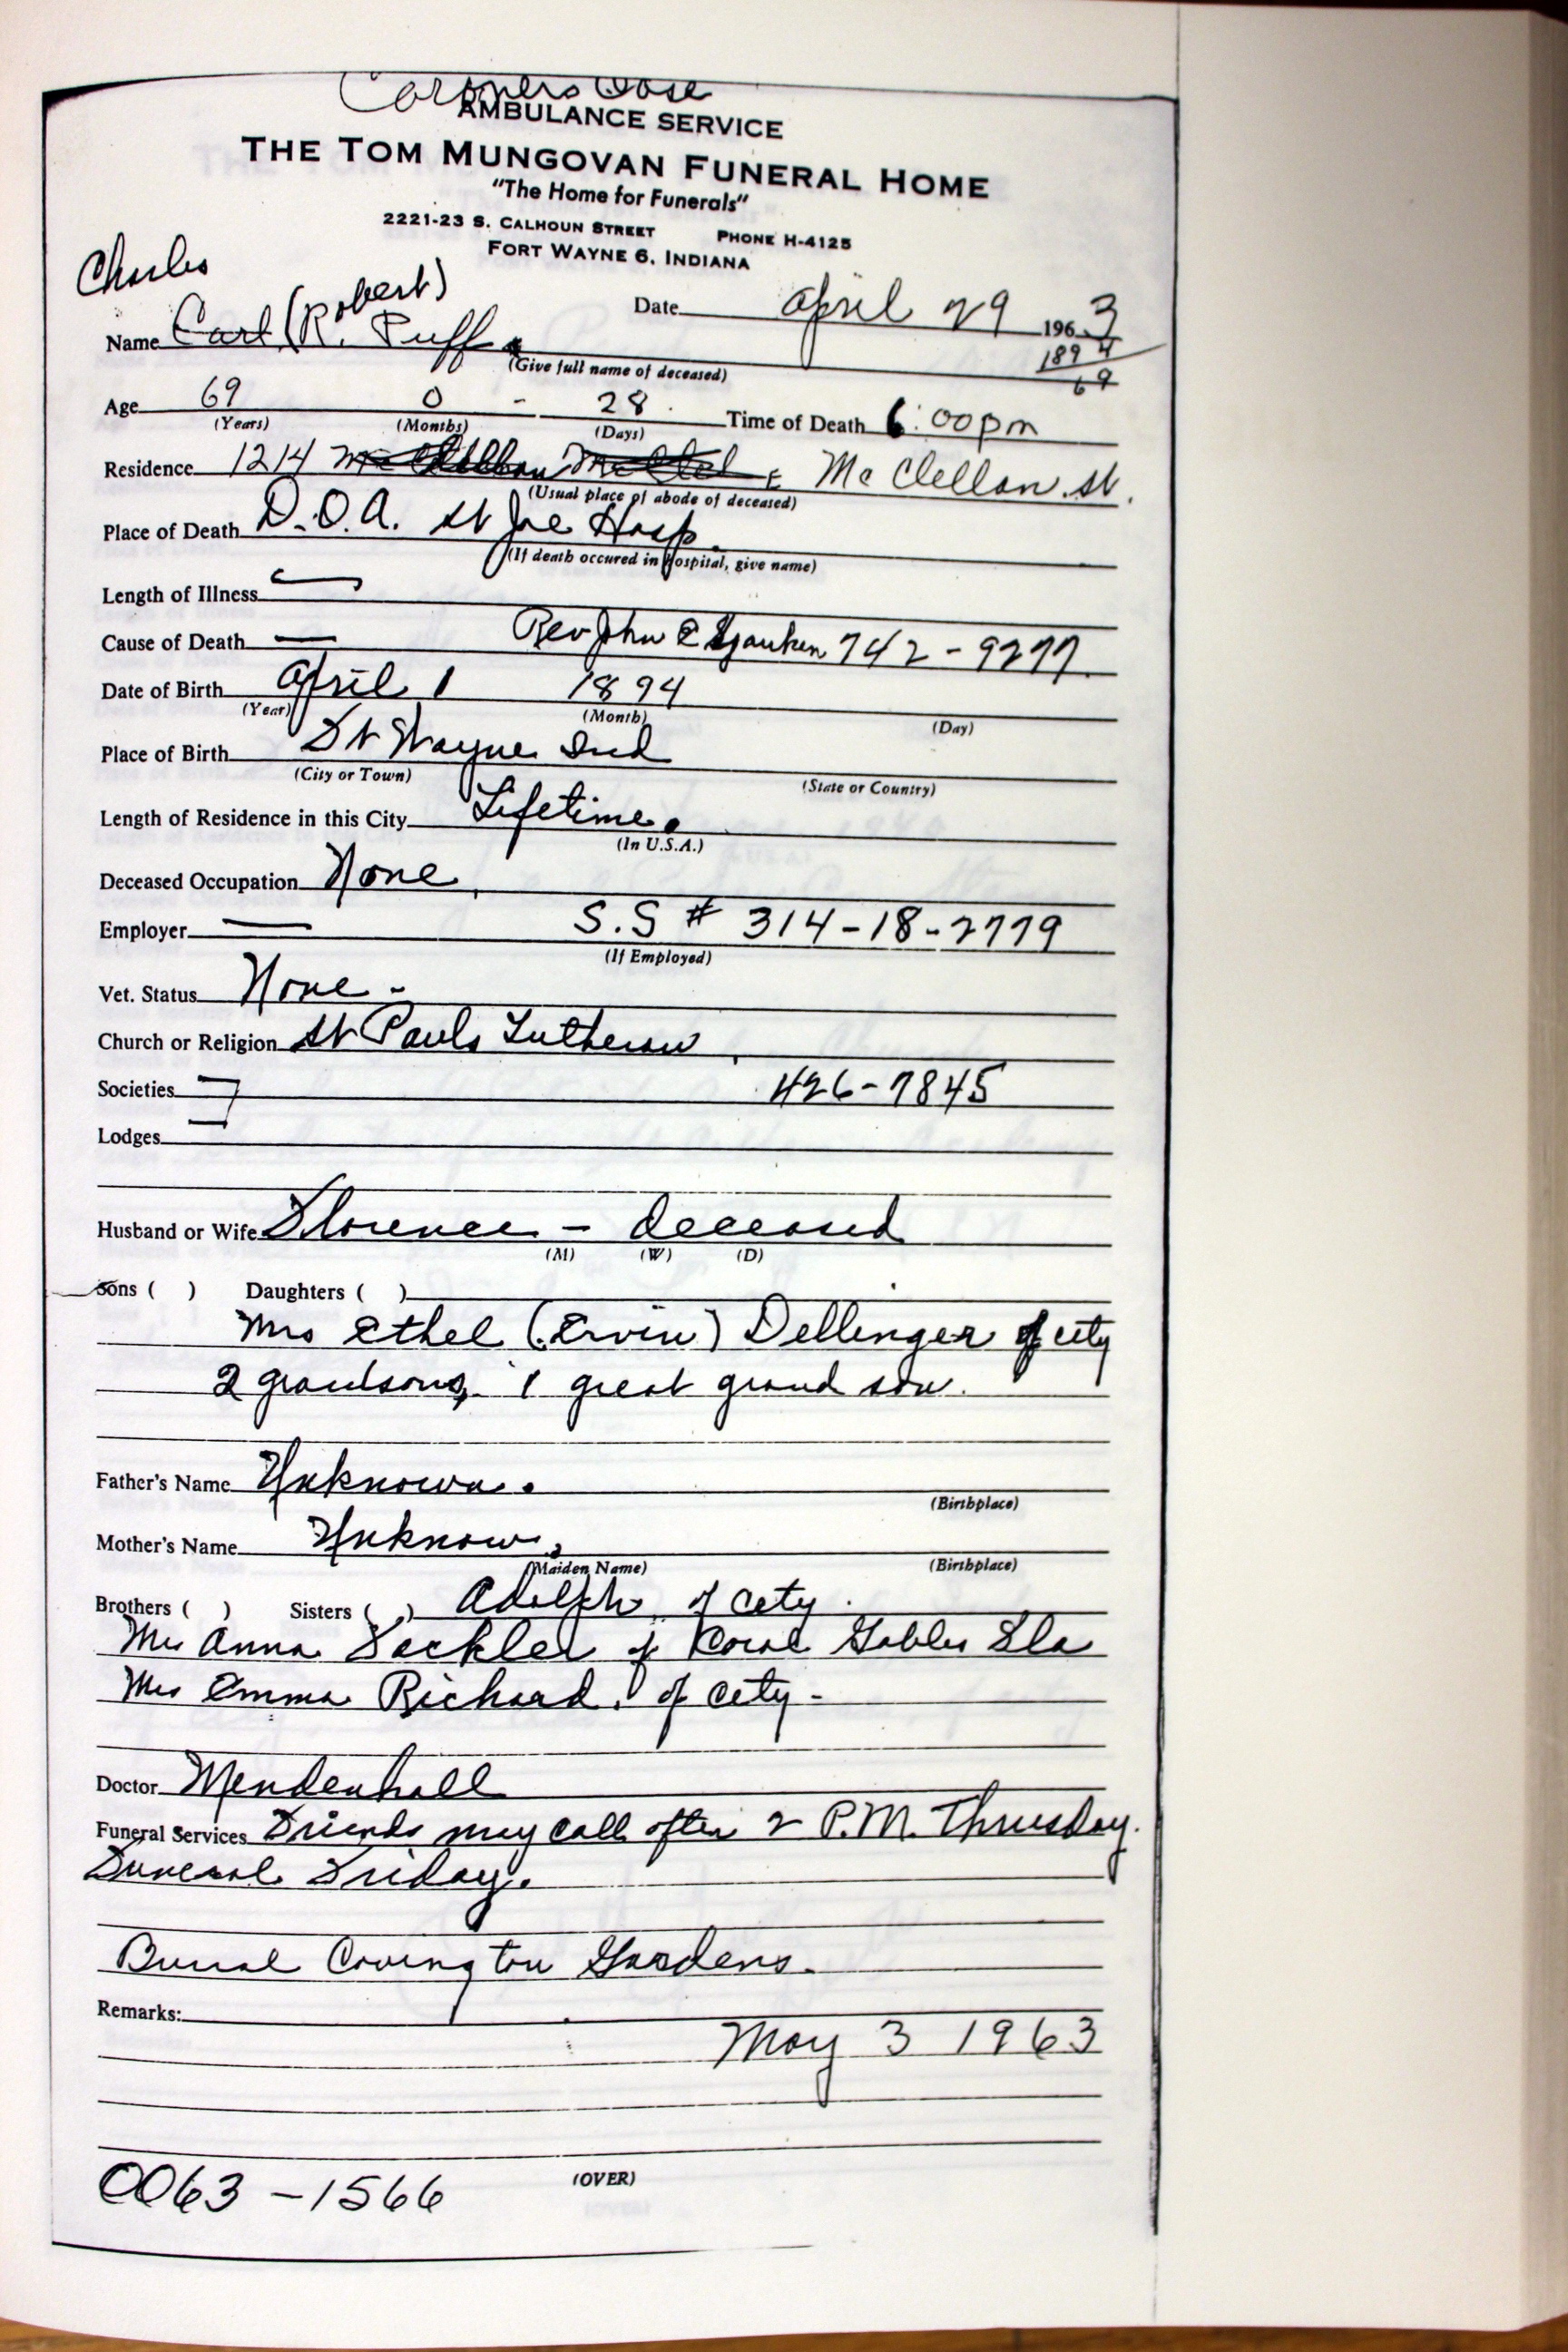 Coroners Case
AMBULANCE SERVICE
THE TOM MUNGOVAN FUNERAL HOME
"The Home for Funerals"
2221-23 S. CALHOUN STREET PHONE H-4125
FORT WAYNE 6, INDIANA
Charles
Date April 29 1963
Name Carl (R. Puff. (Robert)
1894
(Give full name of deceased)
69
Age 69 0 - 28. Time of Death 6:00pm
(Years) (Months) (Days)
Residence 1214 Mc Clellan St.
(Usual place of abode of deceased)
Place of Death D.O.A. St Joe Hosp.
(If death occured in hospital, give name)
Length of Illness —
Cause of Death — Rev John E 742-9277
Date of Birth April 1 1894
(Year) (Month) (Day)
Place of Birth Ft Wayne Ind
(City or Town) (State or Country)
Length of Residence in this City Lifetime.
(In U.S.A.)
Deceased Occupation None
Employer — S.S # 314-18-2779
(If Employed)
Vet. Status None -
Church or Religion St Pauls Lutheran
Societies 426-7845
Lodges —
Husband or Wife Florence - deceased
(M) (W) (D)
Sons ( ) Daughters ( )
Mrs Ethel (Ervin) Dellinger of city
2 grandsons, 1 great grand son.
Father's Name Unknown.
(Birthplace)
Mother's Name Unknow
(Maiden Name) (Birthplace)
Brothers ( ) Sisters ( ) Adolph, of city.
Mrs Anna of Coral Gables Fla
Mrs Emma Richard, of city -
Doctor Mendenhall
Funeral Services Friends may call after 2 P.M. Thursday.
Funeral Friday.
Burial Covington Gardens.
Remarks:
May 3 1963
(OVER)
0063-1566